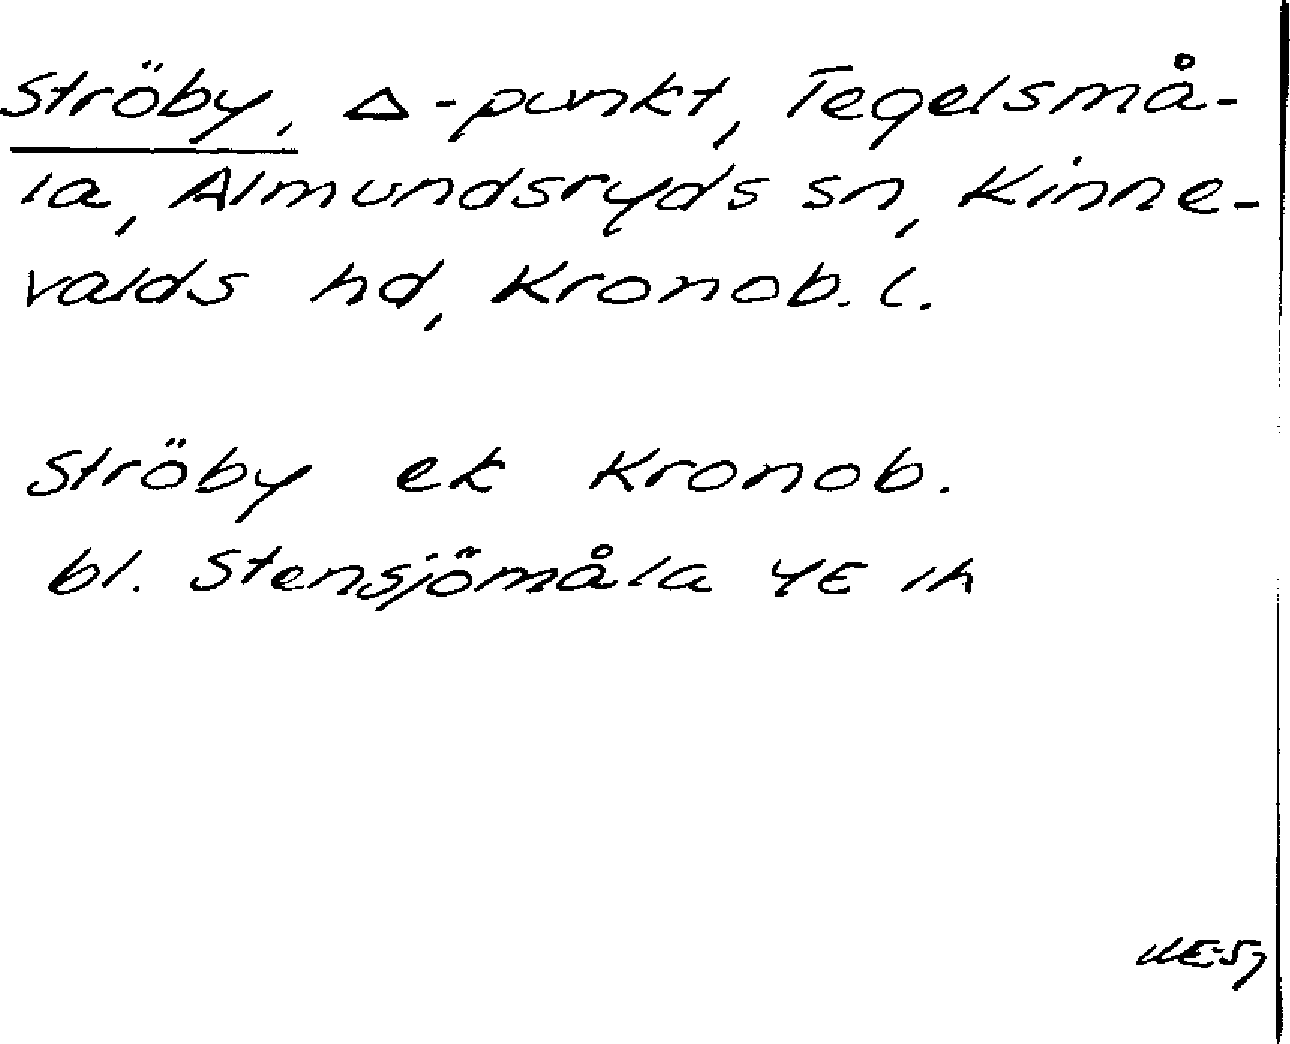 Ströby, △-punkt, Tegelsmå-
la, Almundsryds sn, Kinne-
valds hd, Kronob. l.
Ströby ek Kronob.
bl. Stensjömåla 4E 1h